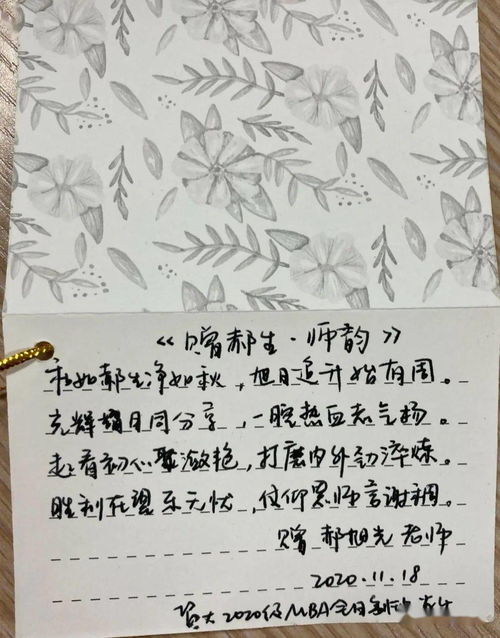 《赠郝生·师韵》
私如郝生净如秋，旭日追升始有周。
光辉耀月同分享，一腔热血志气扬。
走看初心聚潋艳，打磨内外劲淬炼。
胜利在望乐无忧，信仰恩师言谢稠。
赠 郝旭光 老师
2020.11.18
贸大2020级MBA